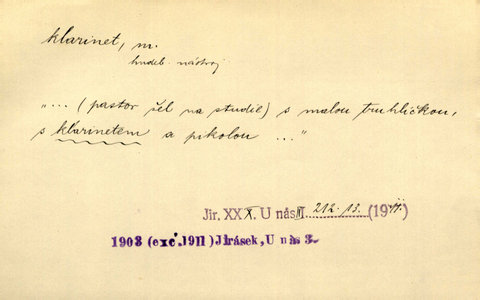 klarinet, m.
hudeb. nástroj
"... (pastor šel na studie) s malou truhličkou,
s klarinetem a pikolou ..."
Jir. XXX. U nás III. 212. 13. (1911.)
1903 (exc. 1911) Jirásek, U nás 3